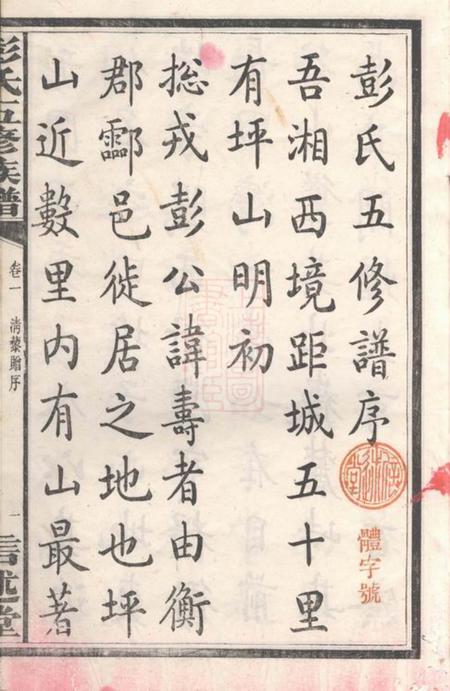 彭氏五修譜序
體字號
吾湘西境距城五十里
有坪山明初
總戎彭公諱壽者由衡
郡酃邑徙居之地也坪
山近數里内有山最著
彭氏五修族譜
卷一
清藜贈序
一
信述堂